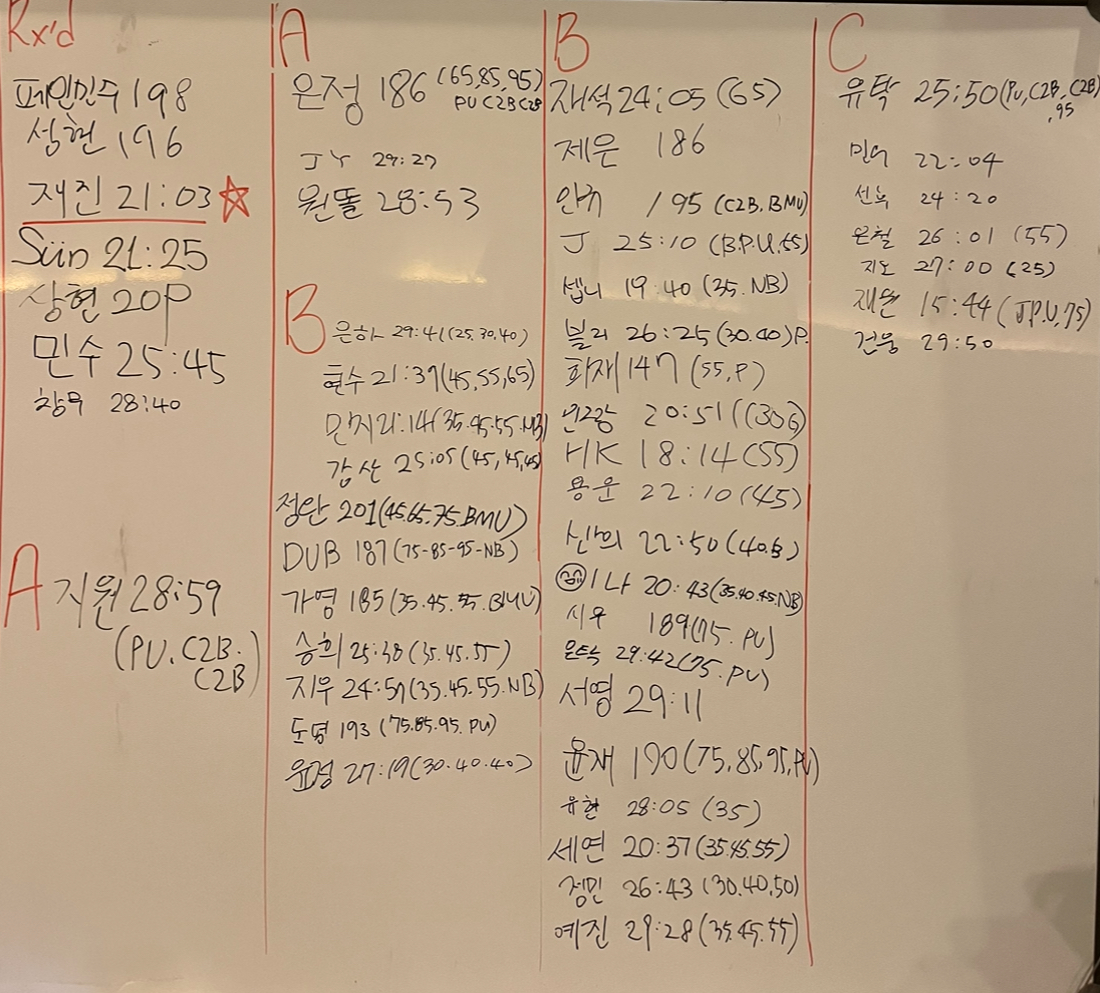 Rx'd
페인민수 198
성현 196
재진 21:03
Sun 21:25
상현 20P
민수 25:45
창무 28:40
A
지원 28:59
(PU. C2B.
C2B)
A
은정 186 (65,85,95)
PU C2B C2B
JY 29:27
원똘 28:53
B
은하 29:41 (25.30.40)
현수 21:39 (45,55,65)
(35.45.55.NB)
감산 25:05 (45, 45,45)
정완 201 (45.65.75.BMU)
DUB 187 (75-85-95-NB)
가영 185 (35.45.55.BMU)
승희 25:38 (35.45.55)
지우 24:57 (35.45.55.NB)
도형 193 (75.85.95.PU)
윤정 27:19 (30.40.40)
B
재석 24:05 (65)
제은 186
195 (C2B.BMU)
J 25:10 (B.P.U.55)
셉니 19:40 (35.NB)
블리 26:25 (30.40) P.
화재 147 (55,P)
인광 20:51
HK 18:14 (55)
용운 22:10 (45)
22:50
1나 20:43 (35.40.45.NB)
시우 189 (75.PU)
은탁 29:42 (75.PU)
서영 29:11
윤재 190 (75,85,95,PU)
유현 28:05 (35)
세연 20:37 (35.45.55)
정민 26:43 (30.40,50)
예진 29:28 (35.45.55)
C
유탁 25:50 (PU,C2B,C2B)
,95
22:04
24:20
은철 26:01 (55)
지도 27:00 (25)
15:44 (JP.U,75)
건웅 29:50